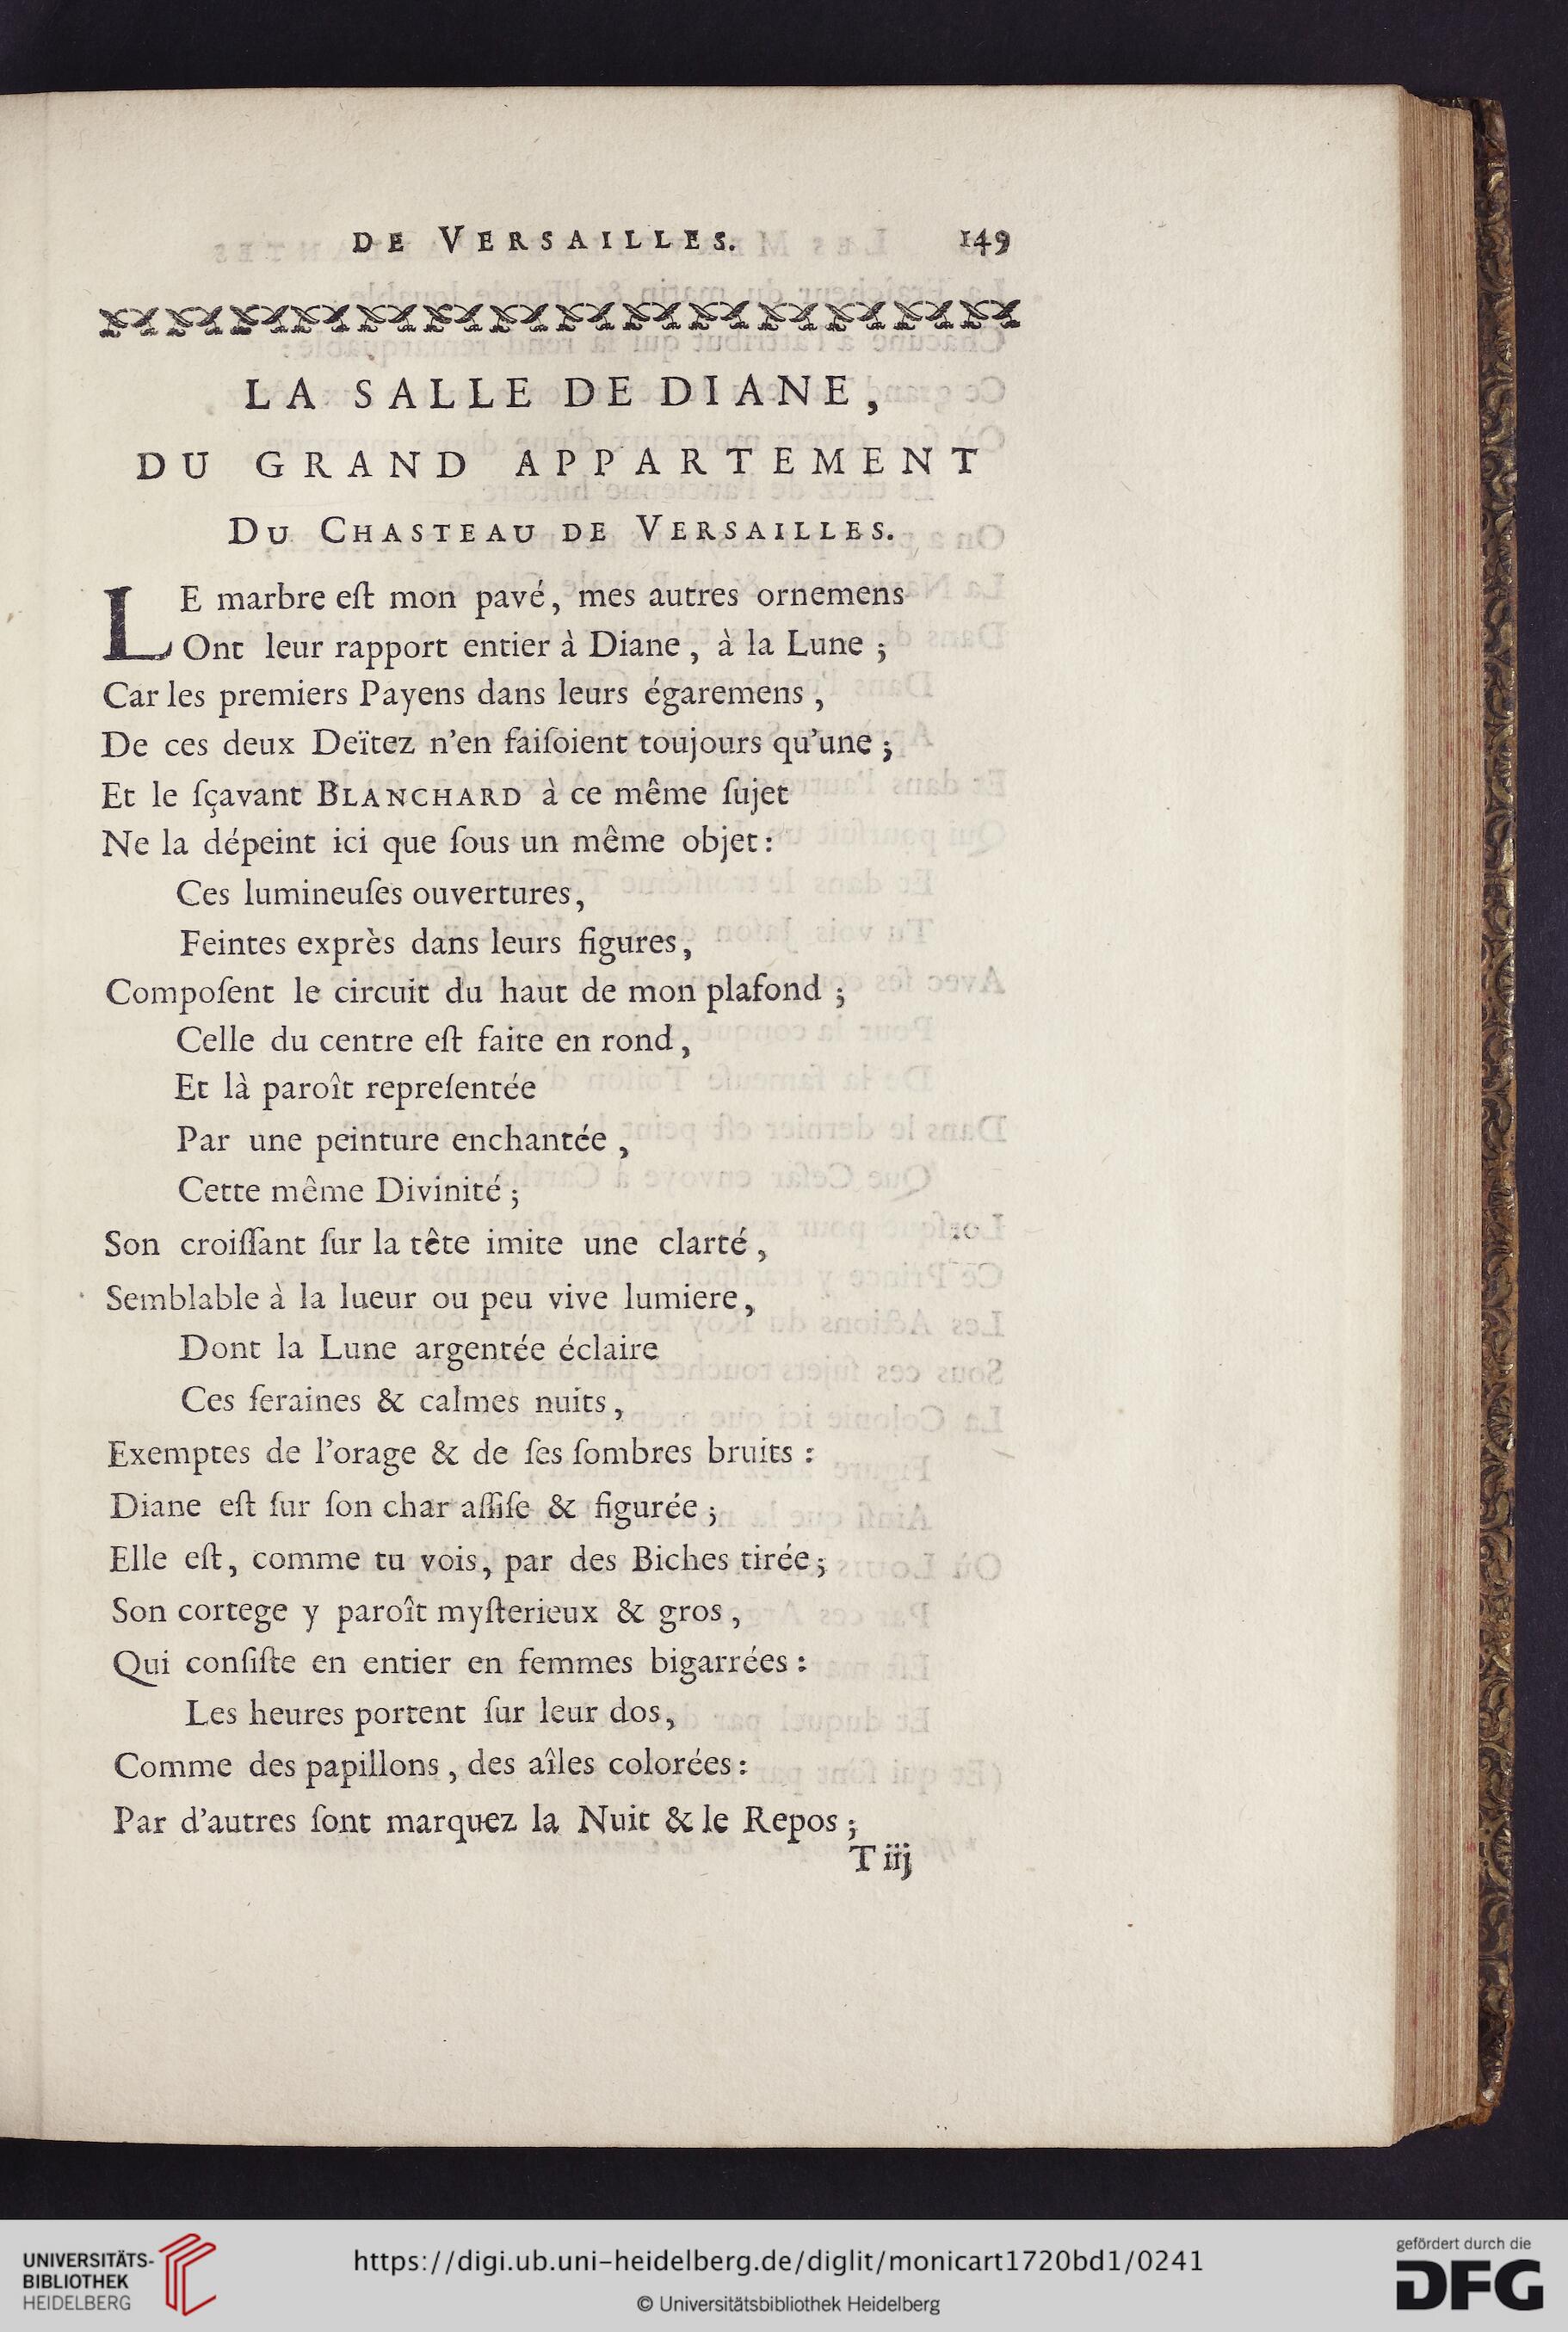 DE VERSAILLES. 149
LA SALLE DE DIANE,
DU GRAND APPARTEMENT
DU CHASTEAU DE VERSAILLES.
LE marbre eſt mon pavé, mes autres ornemens
Ont leur rapport entier à Diane, à la Lune ;
Car les premiers Payens dans leurs égaremens,
De ces deux Deïtez n'en faiſoient toujours qu'une ;
Et le ſçavant BLANCHARD à ce même ſujet
Ne la dépeint ici que ſous un même objet :
Ces lumineuſes ouvertures,
Feintes exprès dans leurs figures,
Compoſent le circuit du haut de mon plafond ;
Celle du centre eſt faite en rond,
Et là paroît repreſentée
Par une peinture enchantée,
Cette même Divinité ;
Son croiſſant ſur la tête imite une clarté,
Semblable à la lueur ou peu vive lumiere,
Dont la Lune argentée éclaire
Ces ſeraines & calmes nuits,
Exemptes de l'orage & de ſes ſombres bruits :
Diane eſt ſur ſon char aſſiſe & figurée ;
Elle eſt, comme tu vois, par des Biches tirée ;
Son cortege y paroît myſterieux & gros,
Qui conſiſte en entier en femmes bigarrées :
Les heures portent ſur leur dos,
Comme des papillons, des aîles colorées :
Par d'autres ſont marquez la Nuit & le Repos ;
T iij
UNIVERSITÄTS-
BIBLIOTHEK
HEIDELBERG
https://digi.ub.uni-heidelberg.de/diglit/monicart1720bd1/0241
© Universitätsbibliothek Heidelberg
gefördert durch die
DFG